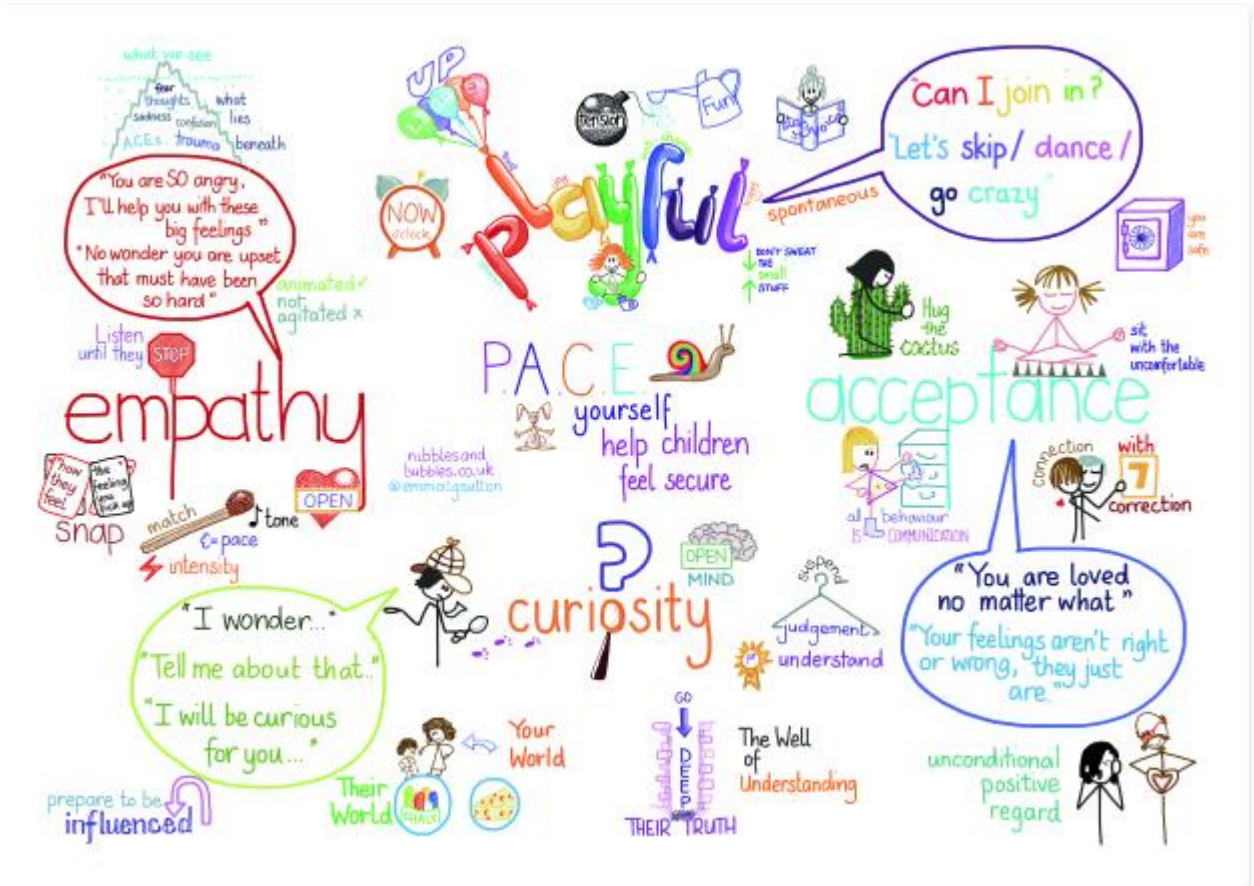 what we see
fear
thoughts
sadness confusion
ACEs trauma
what
lies
beneath
"You are SO angry,
I'll help you with these
big feelings"
"No wonder you are upset
that must have been
so hard"
animated ✓
not
agitated x
Listen
until they
STOP
empathy
"how
they
feel"
the
feeling
you
pick up
snap
match
tone
= pace
intensity
OPEN
UP
Playful
NOW
o'clock
tension
Fun
spontaneous
DON'T SWEAT
THE
small
STUFF
"Can I join in?"
"Let's skip/ dance/
go crazy"
you
are
safe
P.A.C.E
yourself
help children
feel secure
nibblesand
bubbles.co.uk
@emmatgsutton
Hug
the
cactus
sit
with the
uncomfortable
acceptance
all behaviour
IS COMMUNICATION
connection
with
7
correction
"You are loved
no matter what"
"Your feelings aren't right
or wrong, they just
are."
unconditional
positive
regard
?
curiosity
OPEN
MIND
suspend
judgement
1st
understand
"I wonder..."
"Tell me about that.."
"I will be curious
for you..."
prepare to be
influenced
Your
World
Their
World
CHALK
GO
DEEP
THEIR TRUTH
The Well
of
Understanding